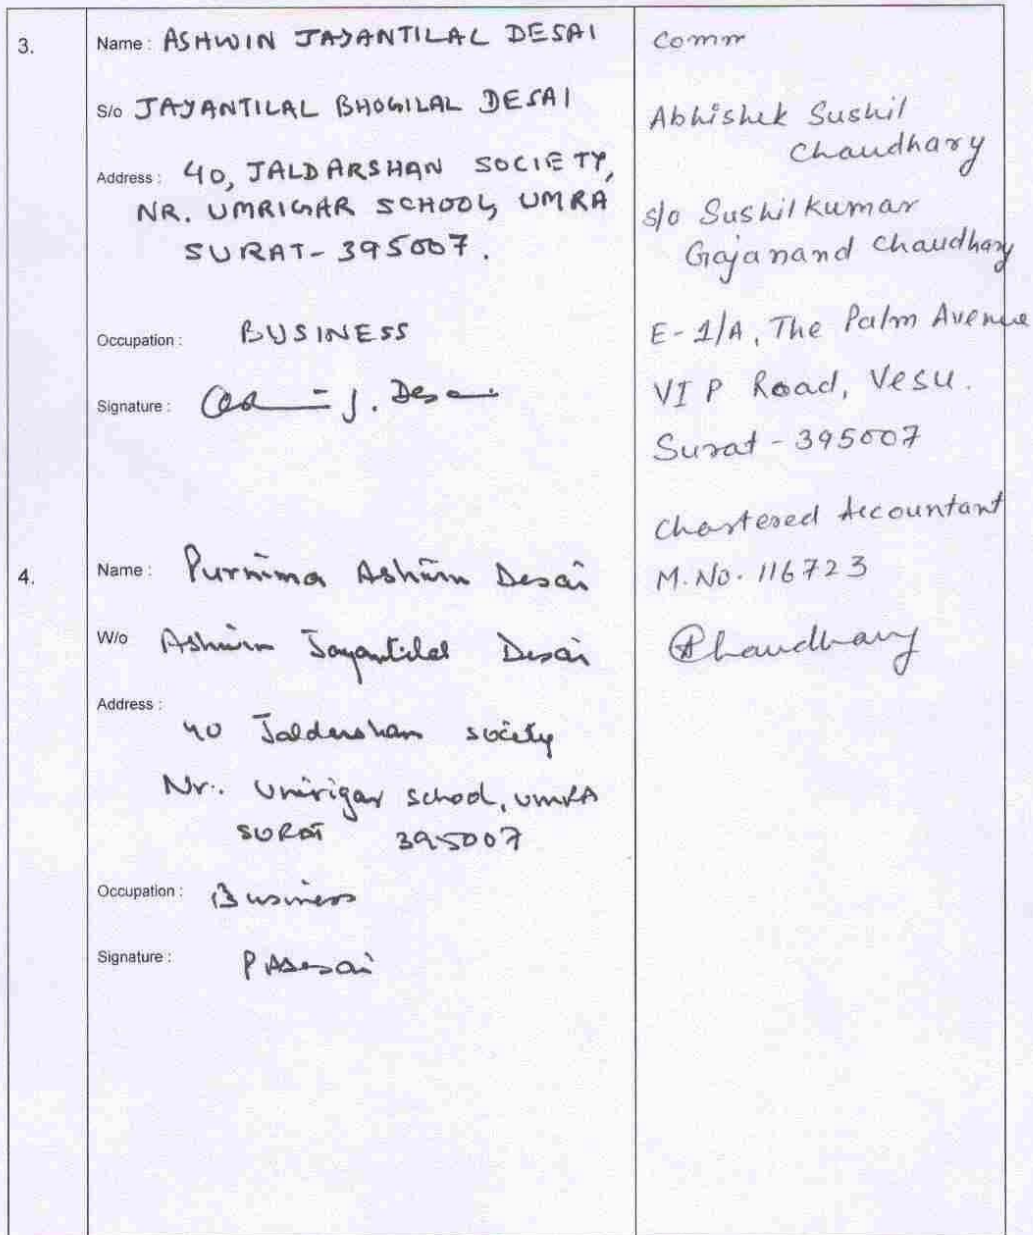 3.
Name : ASHWIN JAYANTILAL DESAI
S/o JAYANTILAL BHOGILAL DESAI
Address : 40, JALDARSHAN SOCIETY,
NR. UMRIGAR SCHOOL, UMRA
SURAT- 395007.
Occupation : BUSINESS
Signature : J. Desai
4.
Name : Purnima Ashwin Desai
W/o Ashwin Jayantilal Desai
Address :
40 Jaldarshan society
Nr. Umrigar school, UMRA
SURAT 395007
Occupation : Business
Signature : PADesai
Comm
Abhishek Sushil
Chaudhary
s/o Sushilkumar
Gajanand Chaudhary
E-1/A, The Palm Avenue
VIP Road, Vesu.
Surat - 395007
Chartered Accountant
M.No. 116723
Chaudhary